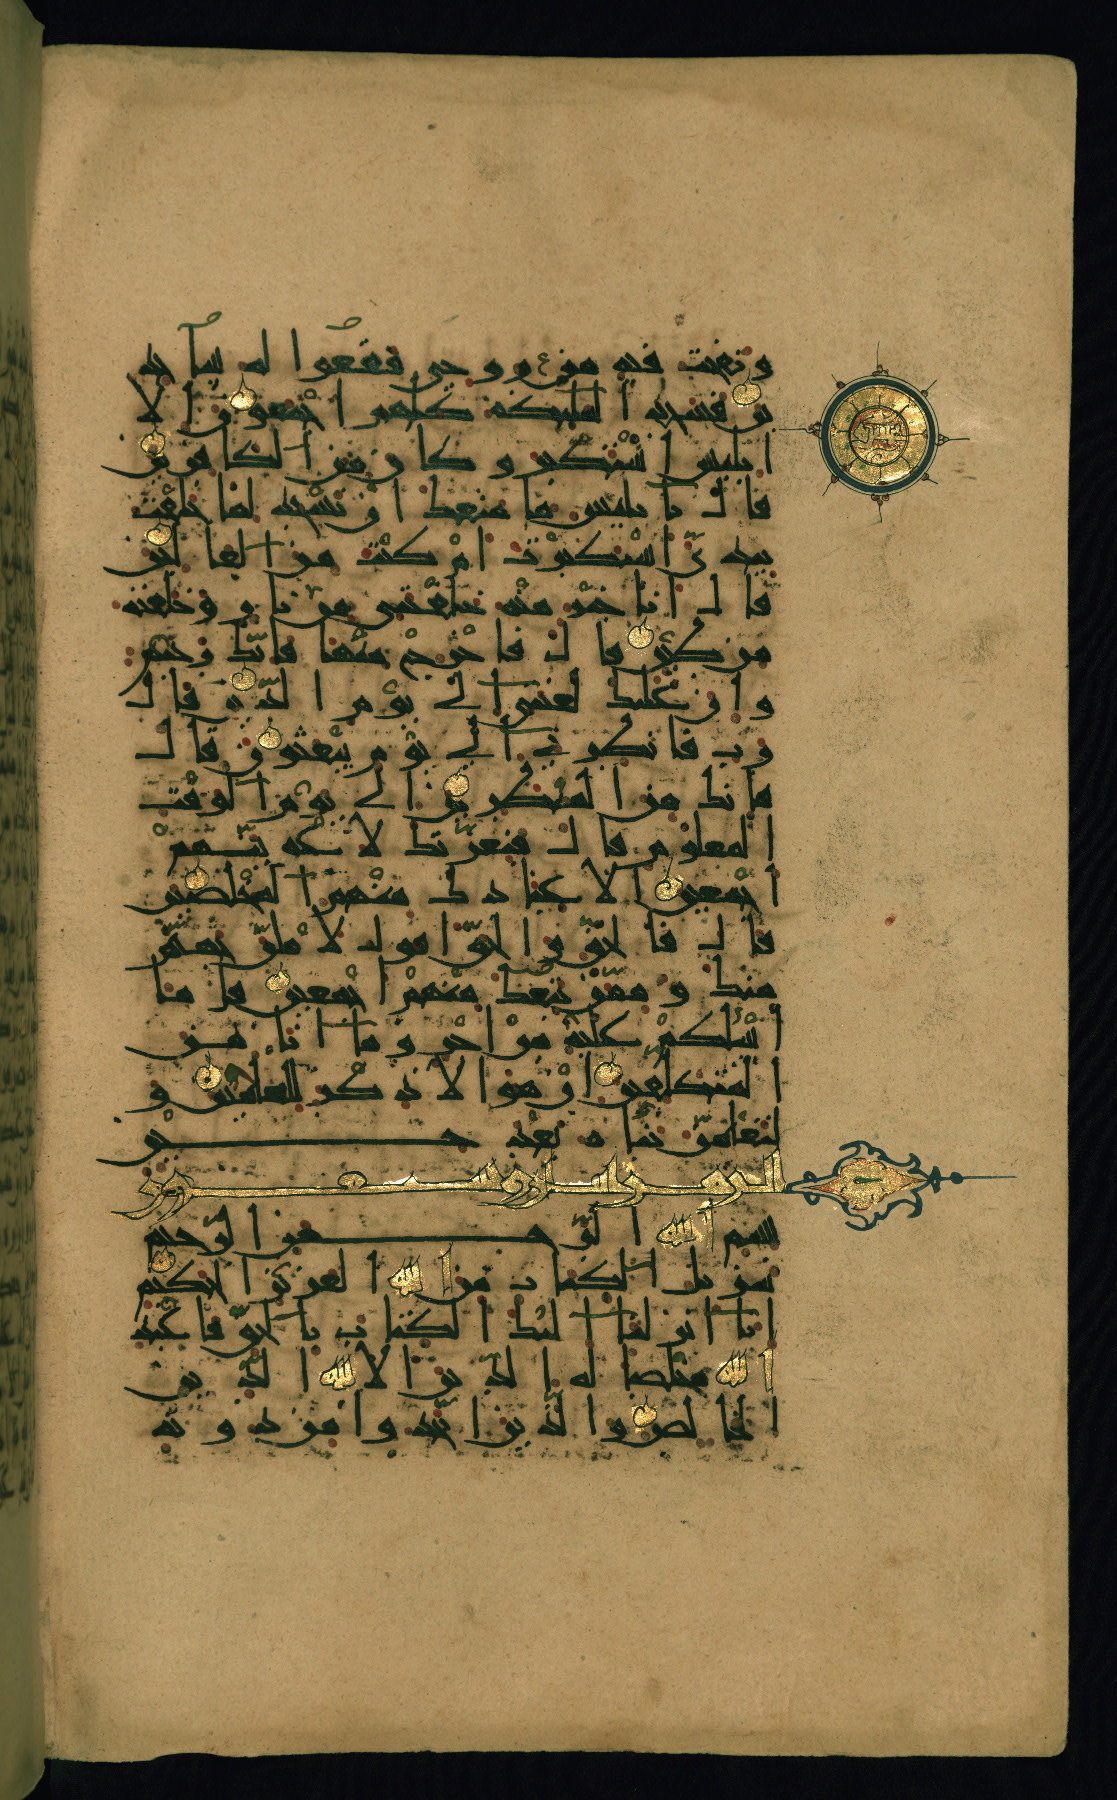 ونفخت فيه من روحي فقعوا له ساجد
ين فسجد الملئكه كلهم اجمعون الا
ابليس استكبر وكان من الكافرين
قال يابليس ما منعك ان تسجد لما خلقت
بيدي استكبرت ام كنت من العالين
قال انا خير منه خلقتني من نار وخلقته
من طين قال فاخرج منها فانك رجيم
وان عليك لعنتي الى يوم الدين قال
رب فانظرني الى يوم يبعثون قال
فانك من المنظرين الى يوم الوقت
المعلوم قال فبعزتك لاغوينهم
اجمعين الا عبادك منهم المخلصين
قال فالحق والحق اقول لاملئن جهنم
منك وممن تبعك منهم اجمعين قل ما
اسئلكم عليه من اجر وما انا من
المتكلفين ان هو الا ذكر للعالمين و
لتعلمن نباه بعد حين
الزمر
بسم الله الرحمن الرحيم
تنزيل الكتاب من الله العزيز الحكيم
انا انزلنا اليك الكتاب بالحق فاعبد
الله مخلصا له الدين الا لله الدين
الخالص والذين اتخذوا من دونه